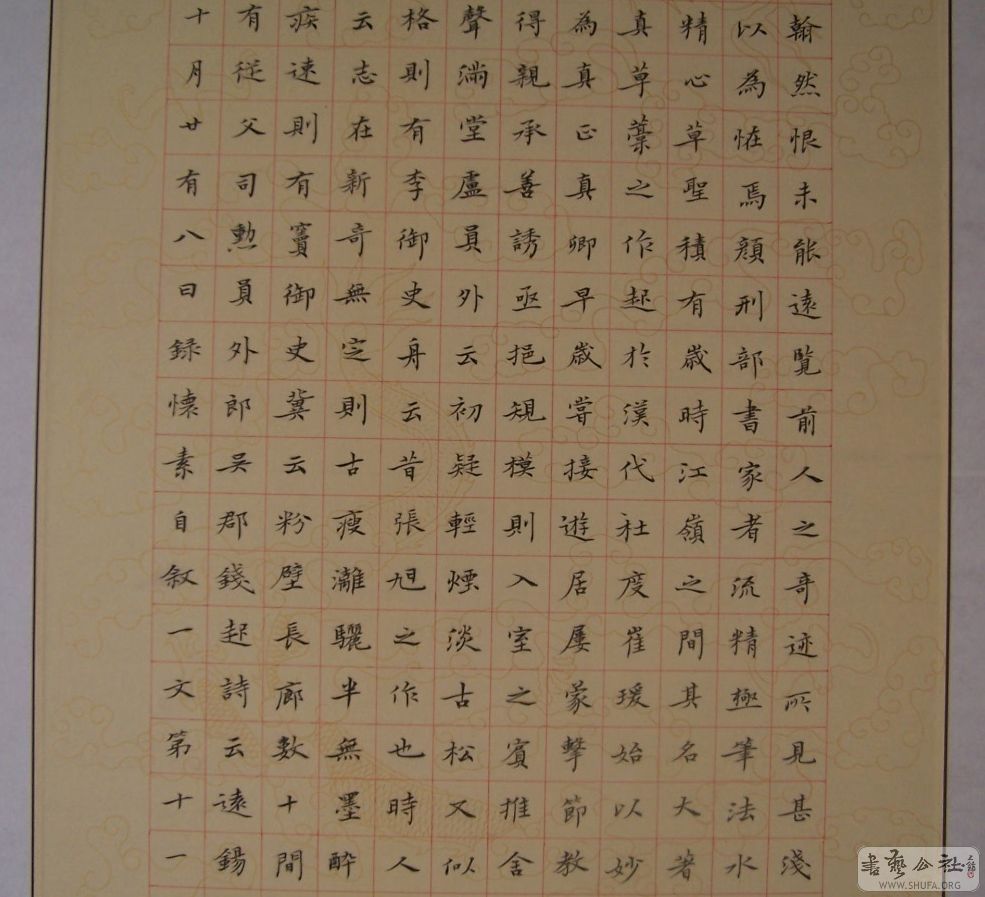 翰然恨未能遠覽前人之奇迹所見甚淺
以為恠焉顏刑部書家者流精極筆法水
精心草聖積有歲時江嶺之間其名大著
真草藁之作起於漢代社度崔瑗始以妙
為真正真卿早歲嘗接遊居屢蒙擊節教
得親承善誘亟挹規模則入室之賓推舍
聲滿堂盧員外云初疑輕煙淡古松又似
格則有李御史舟云昔張旭之作也時人
云志在新奇無定則古瘦灕驪半無墨醉
疾速則有竇御史冀云粉壁長廊數十間
有從父司勳員外郎吳郡錢起詩云遠錫
十月廿有八日錄懷素自叙一文第十一
書藝公社
WWW.SHUFA.ORG